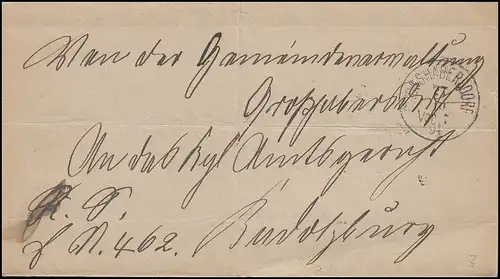 Von der Gemeindeverwaltung
Großhabersdorf
GROSSHABERSDORF
An das Kgl. Amtsgericht
K. S.
N. 462. Cadolzburg
3